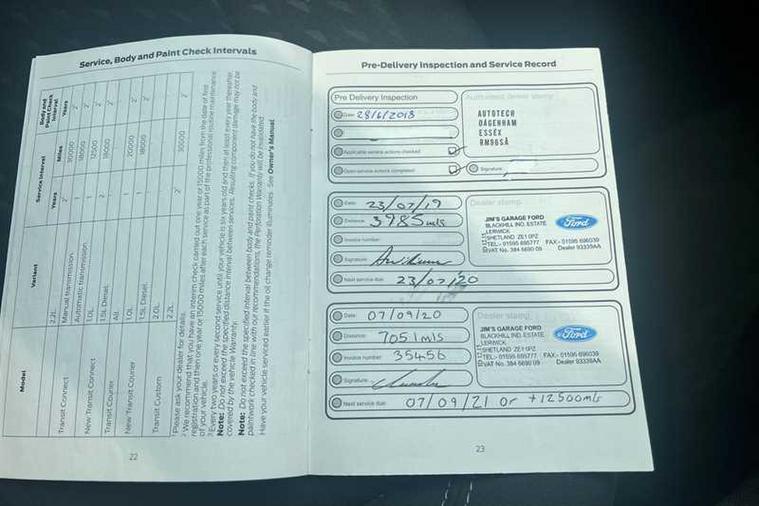 Service, Body and Paint Check Intervals
Model
Variant
Service Interval
Body and
Paint Check
Interval
Years
Miles
Years
Transit Connect
2.2L
2
Manual transmission
1
18000
2
Automatic transmission
1
12500
2
New Transit Connect
1.0L
1.5L Diesel
2
18000
2
Transit Courier
All
1
New Transit Courier
1.0L
1
20000
2
1.5L Diesel
18000
2
Transit Custom
2.0L
2
30000
2
2.2L
Please ask your dealer for details.
We recommend that you have an interim check carried out one year or 15000 miles from the date of first
registration and then one year or 15000 miles after each service as part of the professional routine maintenance
of your vehicle.
Every two years or every second service until your vehicle is six years old and then at least every year thereafter.
Note: Do not exceed the specified distance interval between services. Resulting component damage may not be
covered by the vehicle Warranty.
Note: Do not exceed the specified interval between body and paint checks. If you do not have the body and
paintwork checked in line with our recommendations, the Perforation Warranty will be invalidated.
Have your vehicle serviced earlier if the oil change reminder illuminates. See Owner's Manual.
22
Pre-Delivery Inspection and Service Record
Pre Delivery Inspection
Date: 28/6/2018
Applicable service actions checked
Open service actions completed
Authorised dealer stamp
AUTOTECH
DAGENHAM
ESSEX
RM96SA
Signature
Date: 23/07/19
Distance: 3985 mls
Invoice number:
Signature:
Next service due: 23/07/20
Dealer stamp
JIM'S GARAGE FORD
BLACKHILL IND. ESTATE
LERWICK
SHETLAND ZE1 0PZ
TEL:- 01595 695777 FAX:- 01595 696039
VAT No. 384 5690 09 Dealer 93339AA
Ford
Date: 07/09/20
Distance: 7051 mls
Invoice number: 35456
Signature:
Next service due: 07/09/21 or +12500mls
Dealer stamp
JIM'S GARAGE FORD
BLACKHILL IND. ESTATE
LERWICK
SHETLAND ZE1 0PZ
TEL:- 01595 695777 FAX:- 01595 696039
VAT No. 384 5690 09 Dealer 93339AA
Ford
23